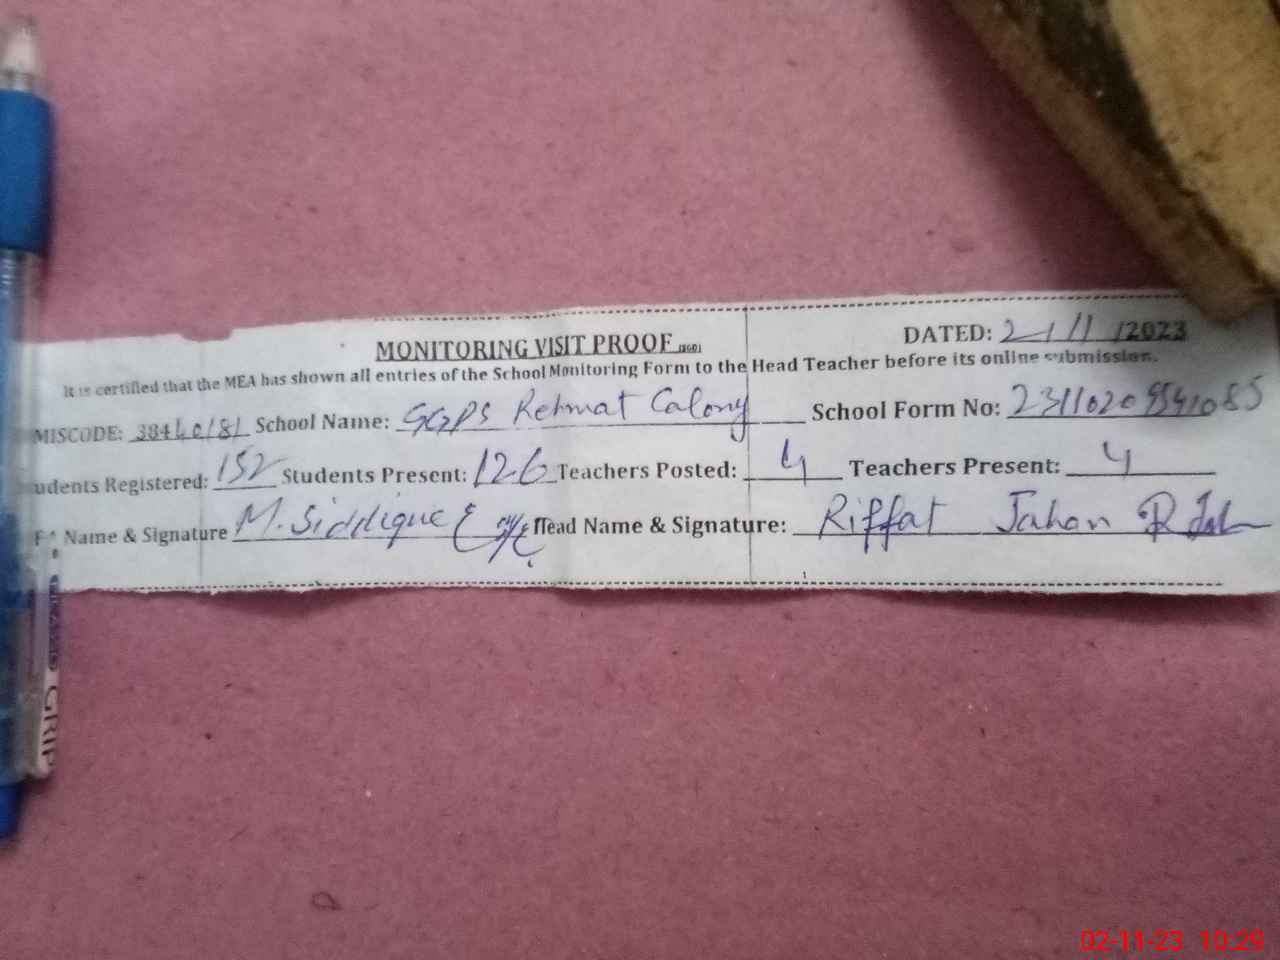 MONITORING VISIT PROOF DATED: 2/11/2023
It is certified that the MEA has shown all entries of the School Monitoring Form to the Head Teacher before its online submission.
MISCODE: 38440181 School Name: GGPS Rehmat Calony School Form No: 23110209541085
udents Registered: 152 Students Present: 126 Teachers Posted: 4 Teachers Present: 4
Name & Signature M. Siddique Head Name & Signature: Riffat Jahan R Jah
GRIP
02-11-23 10:29